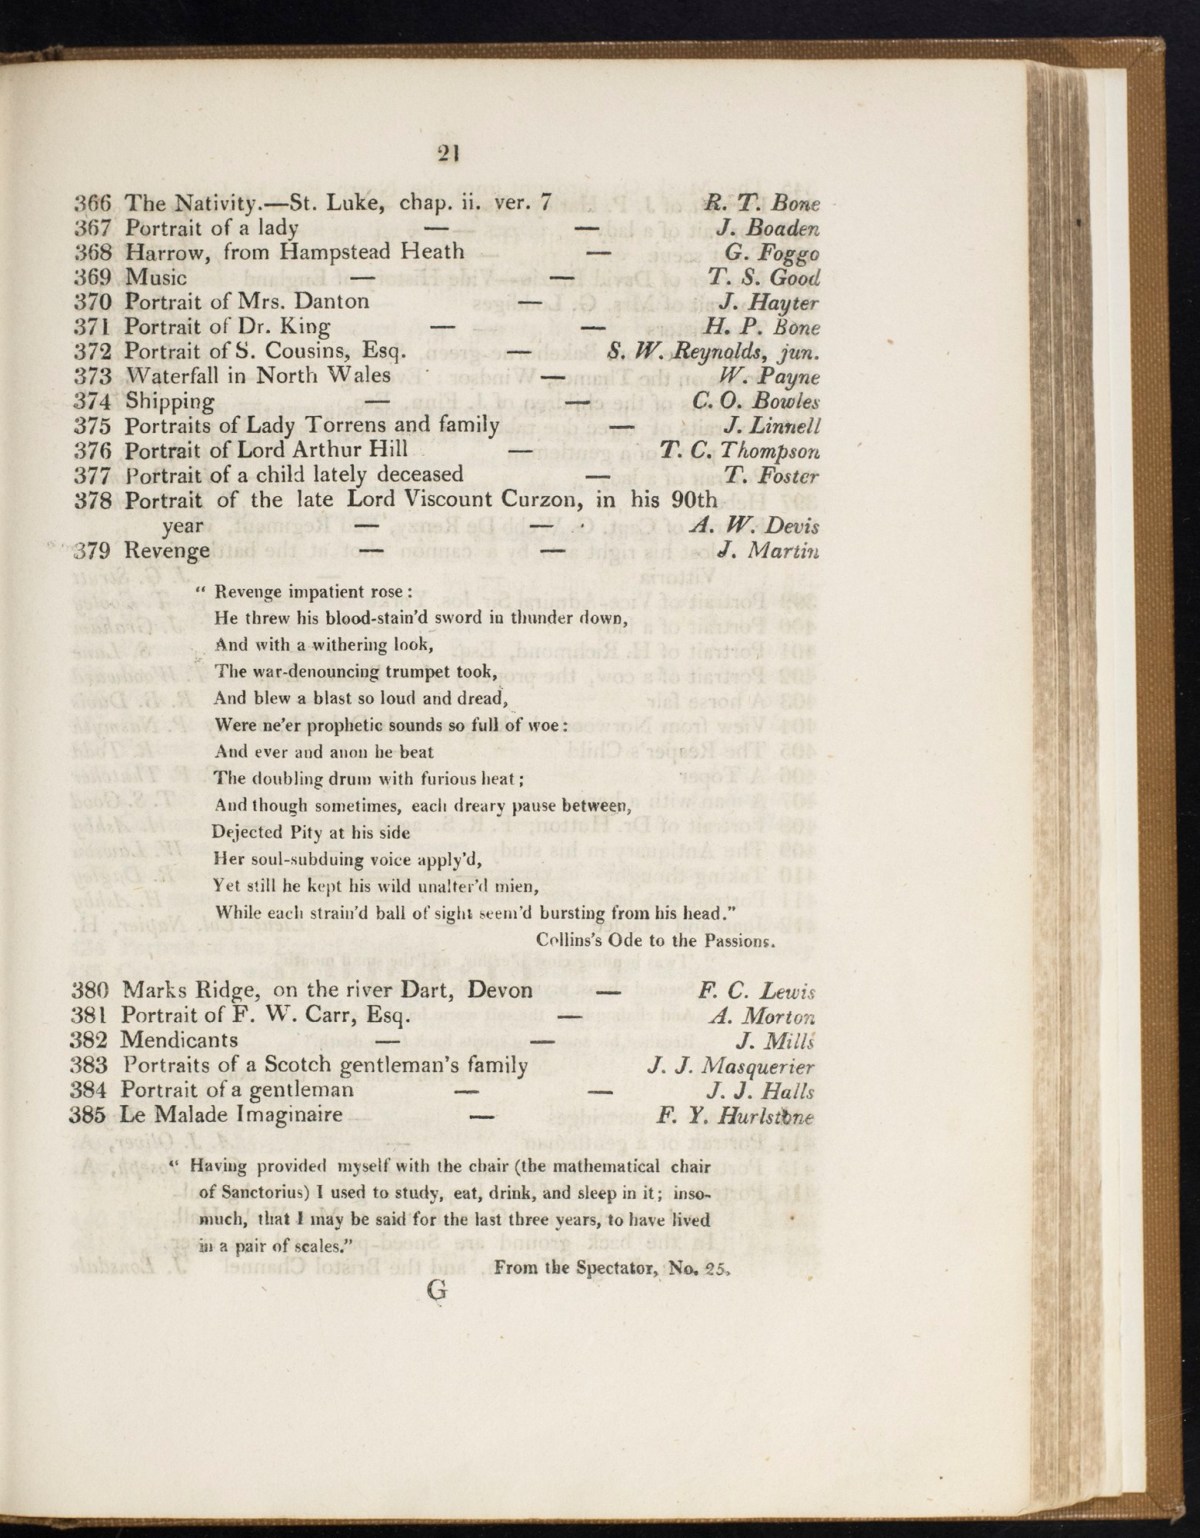 21
366 The Nativity.—St. Luke, chap. ii. ver. 7 R. T. Bone
367 Portrait of a lady — — J. Boaden
368 Harrow, from Hampstead Heath — G. Foggo
369 Music — — T. S. Good
370 Portrait of Mrs. Danton — J. Hayter
371 Portrait of Dr. King — — H. P. Bone
372 Portrait of S. Cousins, Esq. — S. W. Reynolds, jun.
373 Waterfall in North Wales — W. Payne
374 Shipping — — C. O. Bowles
375 Portraits of Lady Torrens and family — J. Linnell
376 Portrait of Lord Arthur Hill — T. C. Thompson
377 Portrait of a child lately deceased — T. Foster
378 Portrait of the late Lord Viscount Curzon, in his 90th
year — — A. W. Devis
379 Revenge — — J. Martin
“ Revenge impatient rose :
He threw his blood-stain’d sword in thunder down,
And with a withering look,
The war-denouncing trumpet took,
And blew a blast so loud and dread,
Were ne’er prophetic sounds so full of woe :
And ever and anon he beat
The doubling drum with furious heat ;
And though sometimes, each dreary pause between,
Dejected Pity at his side
Her soul-subduing voice apply’d,
Yet still he kept his wild unalter’d mien,
While each strain’d ball of sight seem’d bursting from his head.”
Collins’s Ode to the Passions.
380 Marks Ridge, on the river Dart, Devon — F. C. Lewis
381 Portrait of F. W. Carr, Esq. — A. Morton
382 Mendicants — — J. Mills
383 Portraits of a Scotch gentleman’s family J. J. Masquerier
384 Portrait of a gentleman — — J. J. Halls
385 Le Malade Imaginaire — F. Y. Hurlstone
“ Having provided myself with the chair (the mathematical chair
of Sanctorius) I used to study, eat, drink, and sleep in it ; inso-
much, that I may be said for the last three years, to have lived
in a pair of scales.”
From the Spectator, No. 25.
G